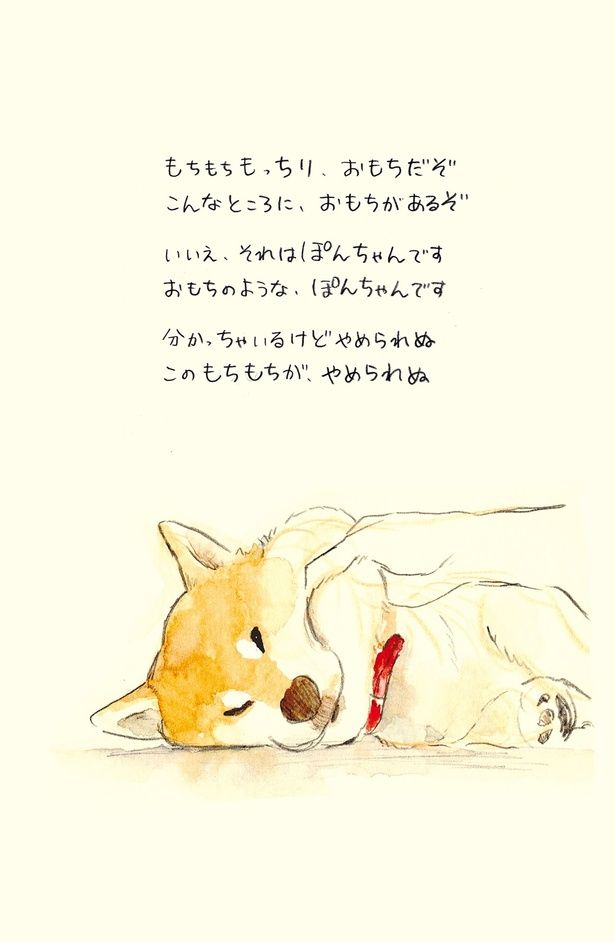 もちもちもっちり、おもちだぞ
こんなところに、おもちがあるぞ
いいえ、それはぽんちゃんです
おもちのような、ぽんちゃんです
分かっちゃいるけどやめられぬ
このもちもちが、やめられぬ